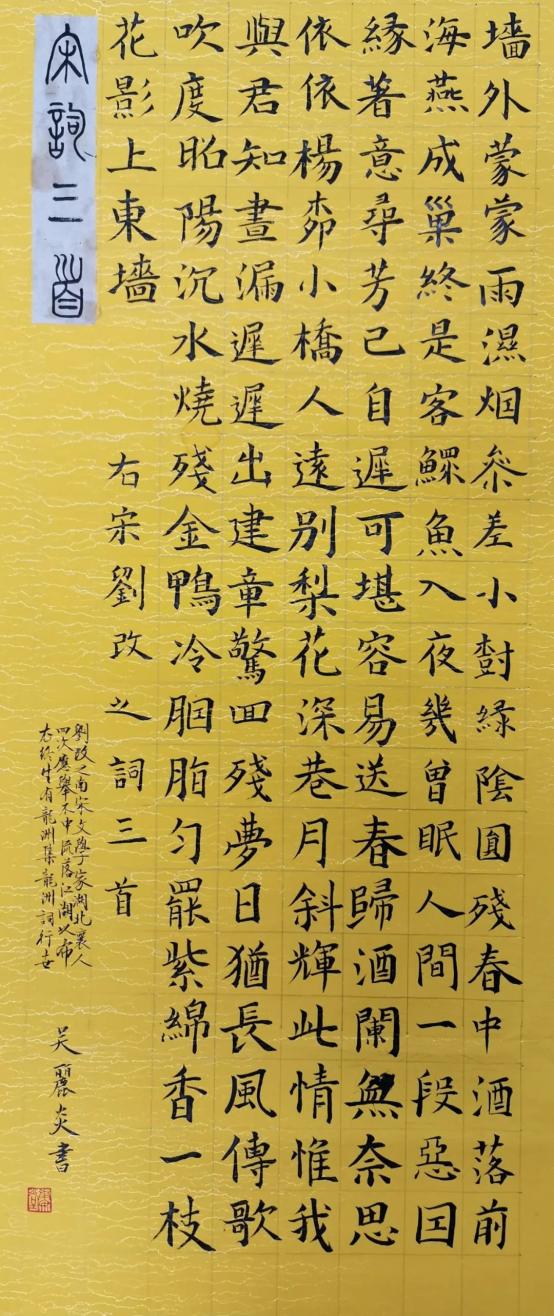 墻外蒙蒙雨濕烟叅差小樹緑陰圓殘春中酒落前
海燕成巢終是客鰥魚入夜幾曾眠人間一段惡因
緣著意尋芳已自遲可堪容易送春歸酒闌無奈思
依依楊桺小橋人遠別梨花深巷月斜輝此情惟我
與君知晝漏遲遲出建章驚回殘夢日猶長風傳歌
吹度昭陽沉水燒殘金鴨冷胭脂匀罷紫綿香一枝
花影上東墻
右宋劉改之詞三首
宋詞三首
劉改之南宋文學家湖北襄人
四次應舉不中流落江湖以布
衣終生有龍洲集龍洲詞行世
吴麗炎書